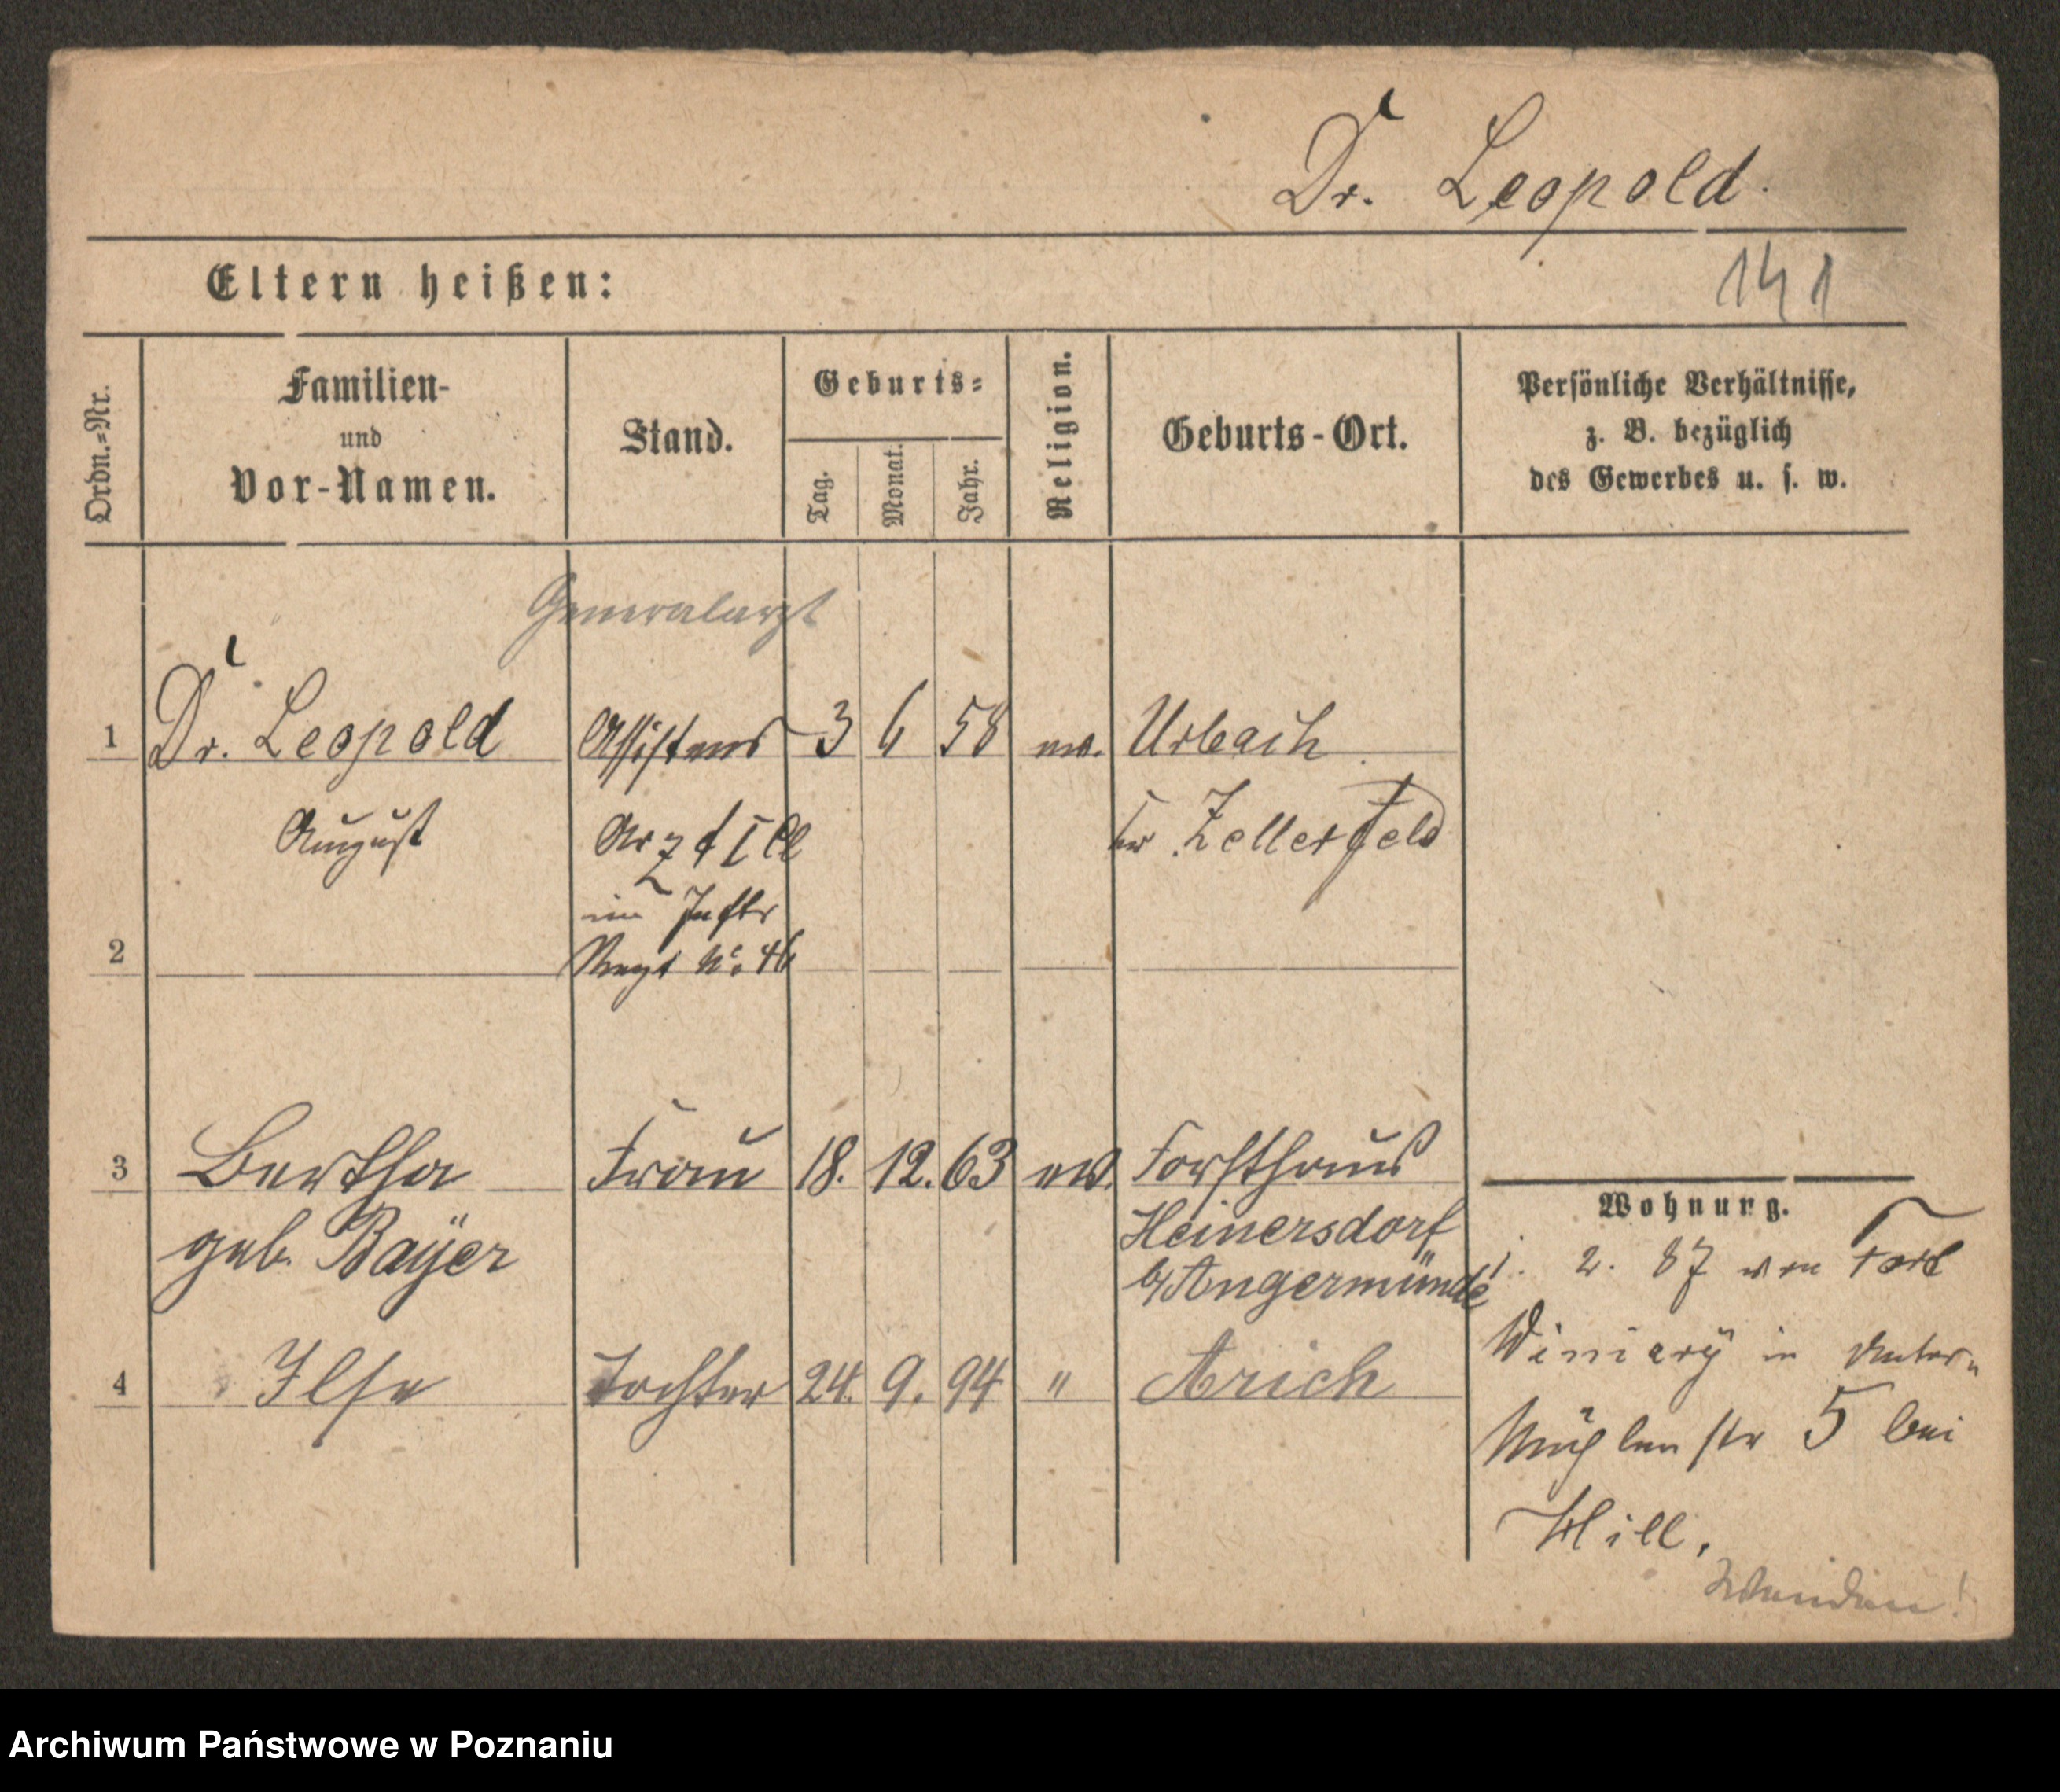 Dr. Leopold.
Eltern heißen:
141
Ordn.=Nr.
Familien-
und
Vor-Namen.
Stand.
Geburts=
Tag.
Monat.
Jahr.
Religion.
Geburts-Ort.
Persönliche Verhältnisse,
z. B. bezüglich
des Gewerbes u. s. w.
Generalarzt
1 Dr. Leopold Assistens 3 6 58 ev. Urbach
August Arzt I Cl Kr Zellerfeld
im Inftr
2 Regt No 46
3 Bertha Frau 18. 12. 63 ev. Forsthaus
geb. Bayer Heinersdorf
b/ Angermünde
4 Ilse Tochter 24. 9. 94 " Zürich
Wohnung.
1. 2. 87 von Fort
Winiary in Unter
Mühlenstr 5 bei
Hill.
Wenden!
Archiwum Państwowe w Poznaniu